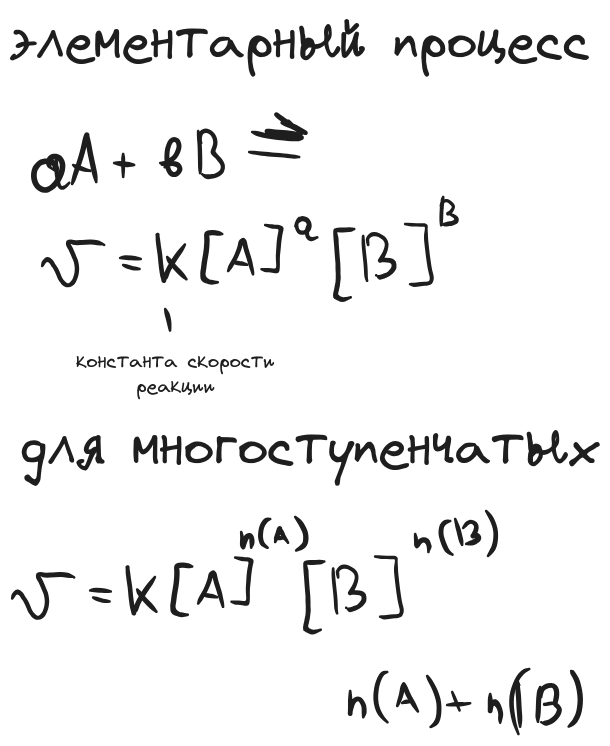 элементарный процесс
aA + вB ⇒
v = k[A]^a [B]^в
константа скорости
реакции
для многоступенчатых
v = k[A]^n(A) [B]^n(B)
n(A) + n(B)